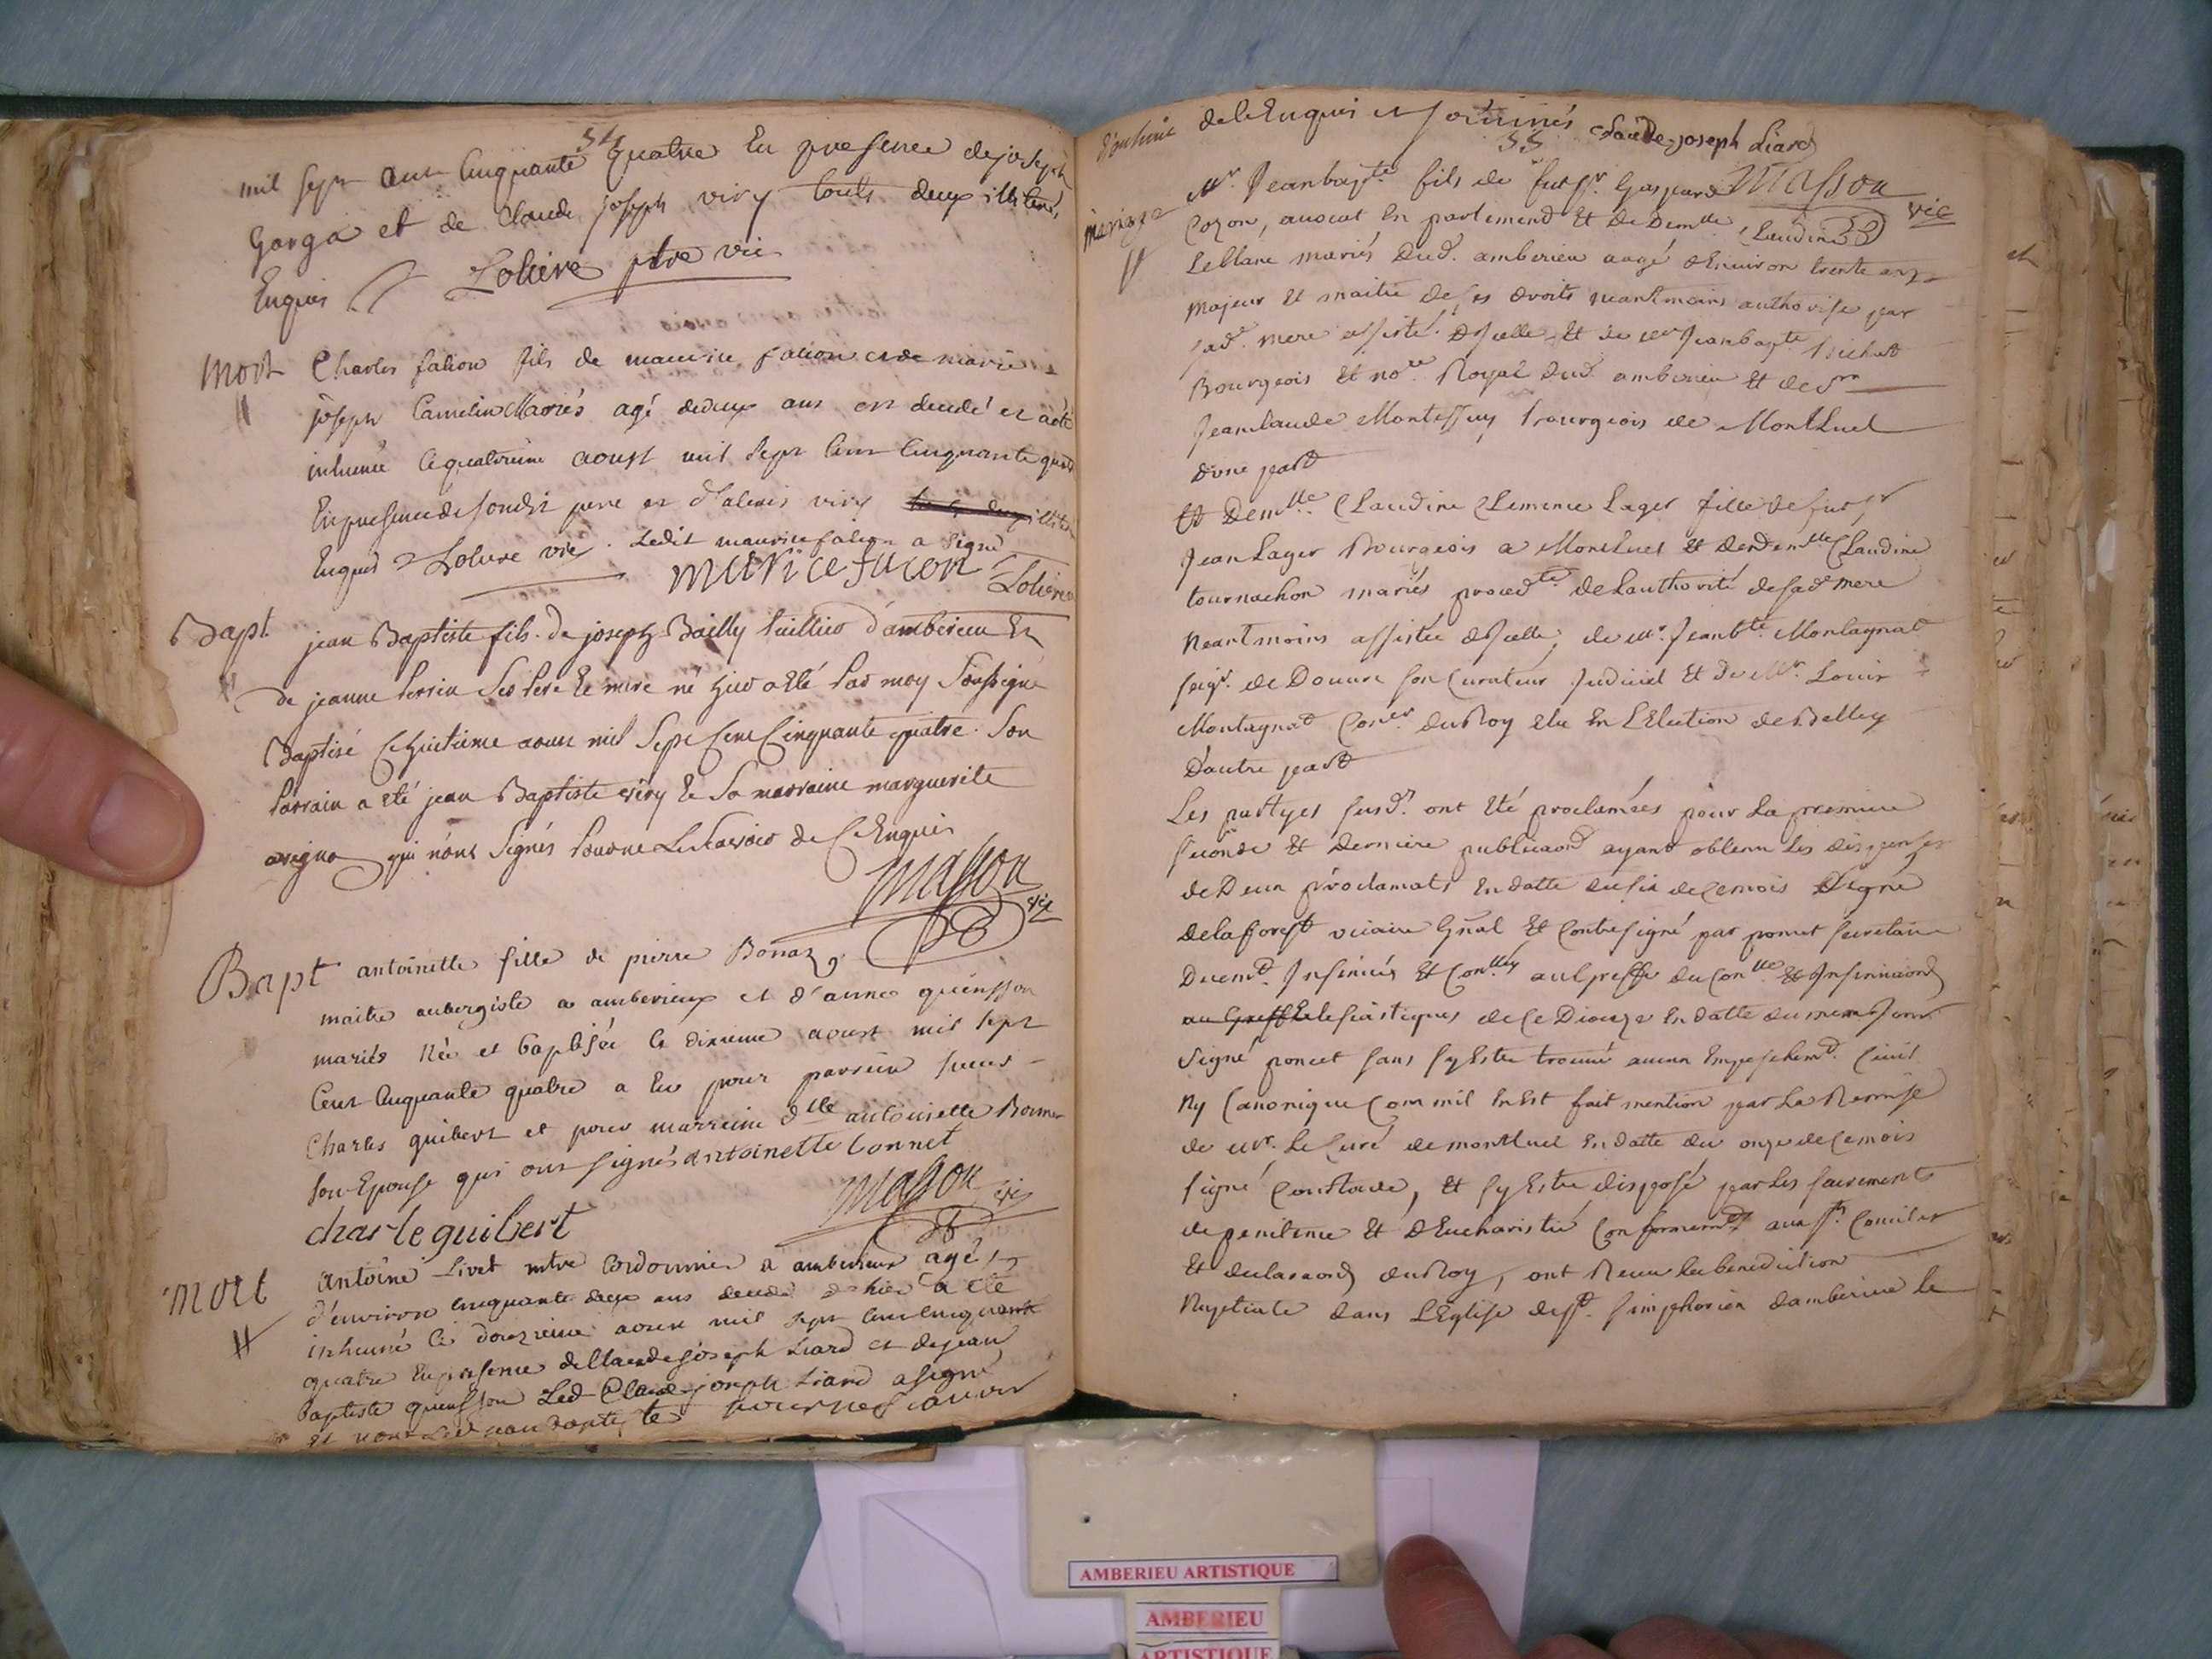 54
mil sept cent cinquante quatre En presence de joseph
Gorga et de Claude joseph viry touts deux illiterés
Enquis Loliere ptre vic
Mort
Charles falion fils de maurice falion et de marie
joseph Camelin Mariés agé de deux ans est decedé et a été
inhumé le quatrieme aoust mil sept cent cinquante quatre
En presence de sondit pere et d'alexis viry
Enquis Loliere vic. Ledit maurice falion a signé
Loliere
Bapt
jean Baptiste fils de joseph Bailly d'amberieu Et
de jeanne Perrin ses Pere Et mere né hier a Eté Par moy Soussigné
Baptisé le huitieme aoust mil Sept Cent Cinquante quatre. Son
Parrain a eté jean Baptiste viry Et Sa marraine marguerite
qui n'ont Signés Pour ne Le Scavoir de ce Enquis
Masson vic
Bapt
antoinette fille de pierre Bonaz
maitre aubergiste a amberieux et d'anne quinsson
mariés Née et baptisée le dixieme aoust mil sept
Cent Cinquante quatre a Eu pour parrein sieur
Charles guibert et pour marreine dlle antoinette Bonnet
son Epouse qui ont signés antoinette bonnet
Masson vic
charle guibert
Mort
Antoine Livet mtre Cordonnier a amberieux agé
d'environ cinquante deux ans decedé d hier a eté
inhumé le douzieme aoust mil sept cent cinquante
quatre En presence de Claude joseph Liard et de jean
Baptiste quinsson Led Claude joseph Liard a signé
et non Led jean baptiste pour ne scavoir
de ce Enquis et sommés Claude-joseph Liard
55
Masson vic
mariage
Mr. Jean bapte. fils de fut Sr. Gaspard
Cozon, avocat En parlement Et de Demlle. Claudine
Leblanc mariés dud. amberieu aagé d'Environ trente ans
majeur Et maitre de ses droits neantmoins authorisé par
sad. mere assisté d'Icelle, Et de mr Jean bapte. Bichat
Bourgeois Et nore. Royal dud. amberieu Et de Sr
Jean Claude Montessuy bourgeois de Montluel
d'une part
Et Demlle. Claudine Clemence Lager fille de fut Sr
Jean Lager Bourgeois a Montluel Et de Demlle Claudine
tournachon mariés procedte. de L'authorité de sad mere
Neantmoins assistée d'Icelle, de mr. Jean bte. Montagnat
seigr. de Douure son Curateur Judiciel Et de Mr. Louis
Montagnat Coner du Roy Elu En L'Election de Belley
d'autre part
Les partyes susd. ont Eté proclamées pour La premiere
seconde Et derniere publication ayant obtenu Les dispenses
de Deux proclamats En datte du six de ce mois Signé
Delaforest vicaire Gnal Et Contresigné par poncet secretaire
Duemt. Insinués Et Conllés au Greffe du Conlle Et Insinuaons
au Greffe Eclesiastiques de ce Dioceze En datte du meme Jour
Signé poncet sans sy Estre trouvé aucun Empeschemt. Civil
Ny Canonique Comm'il En Est fait mention par La Remise
de Mr. Le Curé de montluel En datte du onze de ce mois
signé, Et sy Estre disposé par Les sacrements
de penitence Et d'Eucharistie Conformemt aux Sts. Conciles
Et declaraons du Roy, ont Receu La benediction
Nuptiale dans L'Eglise de St. Simphorien d'amberieu le
AMBERIEU ARTISTIQUE
AMBERIEU
ARTISTIQUE